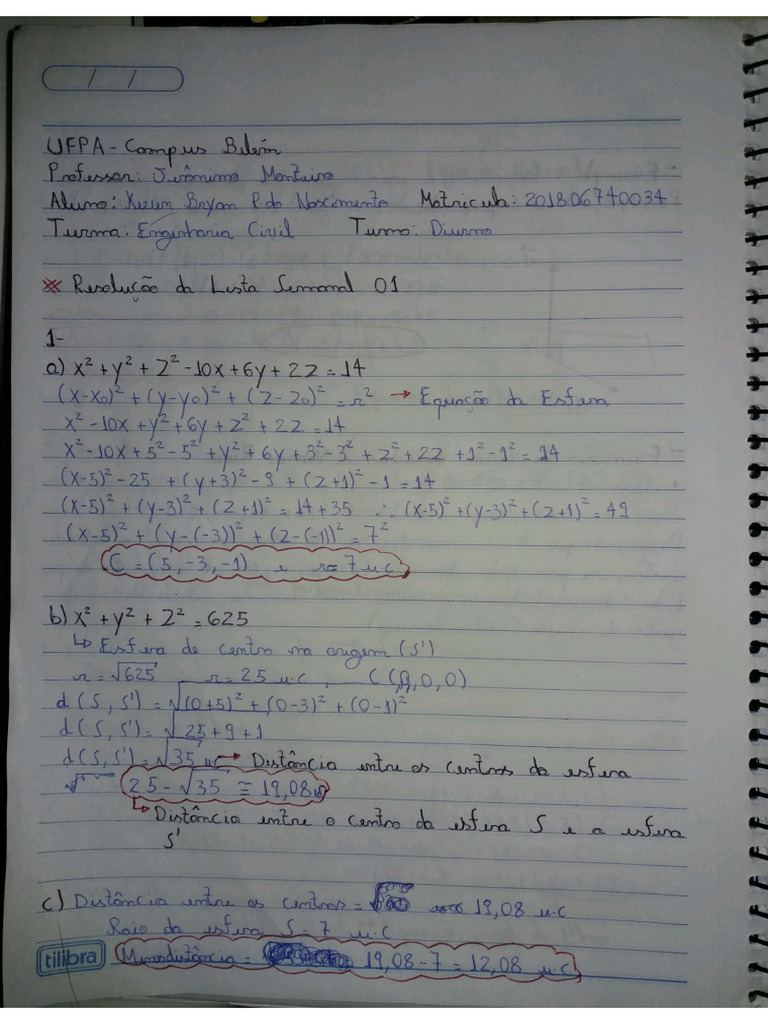 / /
UFPA - Campus Belém
Professor: Jerônimo Monteiro
Aluno: Kevin Bryan P. do Nascimento Matricula: 201806740034
Turma: Engenharia Civil Turno: Diurno
※ Resolução da Lista Semanal 01
1-
a) x² + y² + z² - 10x + 6y + 2z = 14
(x-x0)² + (y-y0)² + (z-z0)² = r² → Equação da Esfera
x² - 10x + y² + 6y + z² + 2z = 14
x² - 10x + 5² - 5² + y² + 6y + 3² - 3² + z² + 2z + 1² - 1² = 14
(x-5)² - 25 + (y+3)² - 9 + (z+1)² - 1 = 14
(x-5)² + (y-3)² + (z+1)² = 14 + 35 ∴ (x-5)² + (y-3)² + (z+1)² = 49
(x-5)² + (y-(-3))² + (z-(-1))² = 7²
C = (5, -3, -1) e r = 7 u.c
b) x² + y² + z² = 625
↳ Esfera de centro na origem (S')
r = √625 r = 25 u.c , C(0,0,0)
d(S, S') = √(0+5)² + (0-3)² + (0-1)²
d(S, S') = √25 + 9 + 1
d(S, S') = √35 uc → Distância entre os centros da esfera
25 - √35 ≅ 19,08
↳ Distância entre o centro da esfera S e a esfera
S'
c) Distância entre os centros = 19,08 u.c
Raio da esfera S = 7 u.c
tilibra Menor distância = 19,08 - 7 = 12,08 u.c